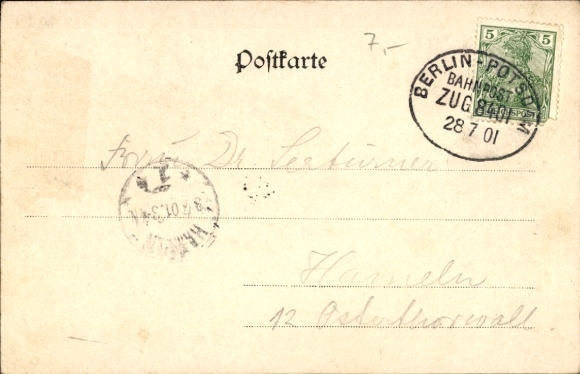 7,-
Postkarte
5 5
BERLIN-POTSD M
BAHNPOST
ZUG 8401
28 7 01
Frau Dr. Seeturner
Hameln
12 Osterthorwall.